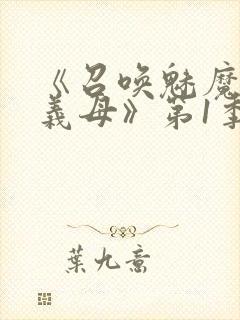 《召唤魅魔
義母》第1季
葉九意